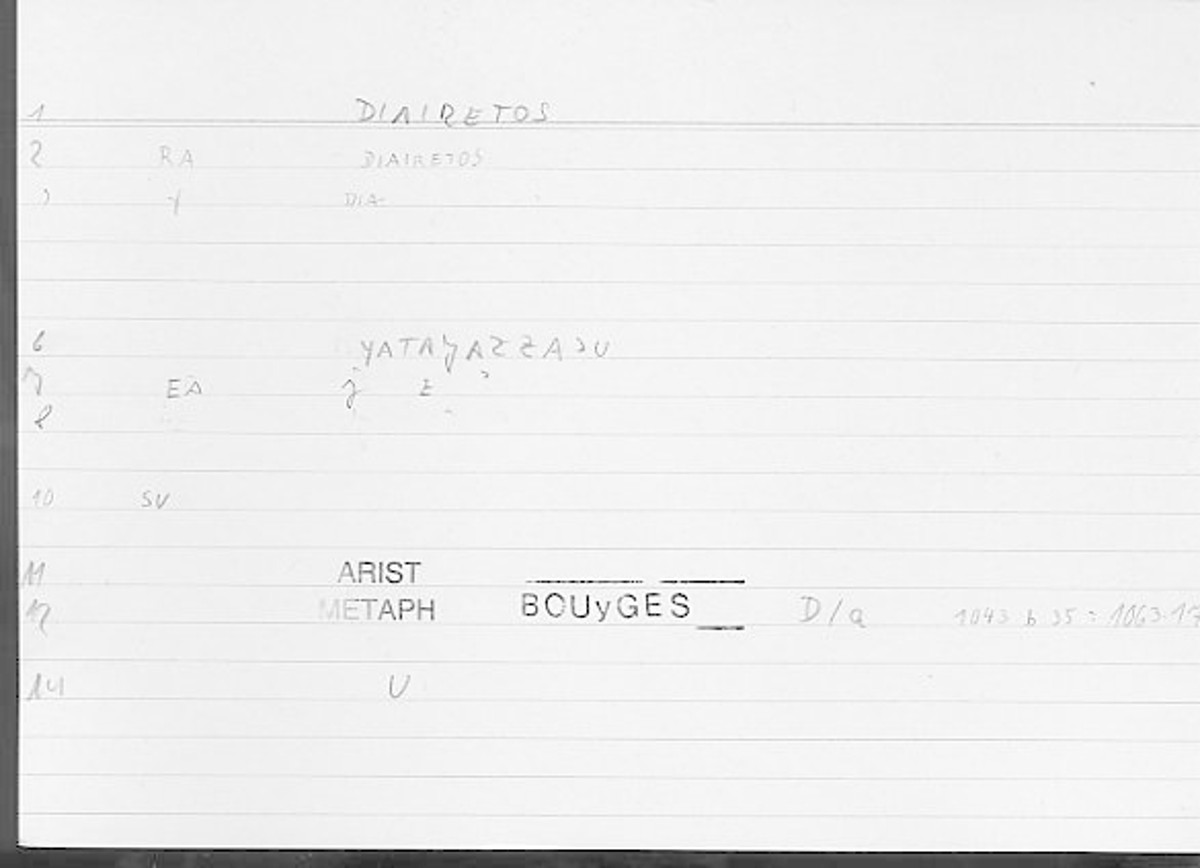 1 DIAIRETOS
2 RA DIAIRETOS
DIA-
6 YATAYAZZAƆU
7 EA
8
10 SV
11 ARIST
12 METAPH BOUyGES D/a 1043 b 35 : 1063.17
14 U